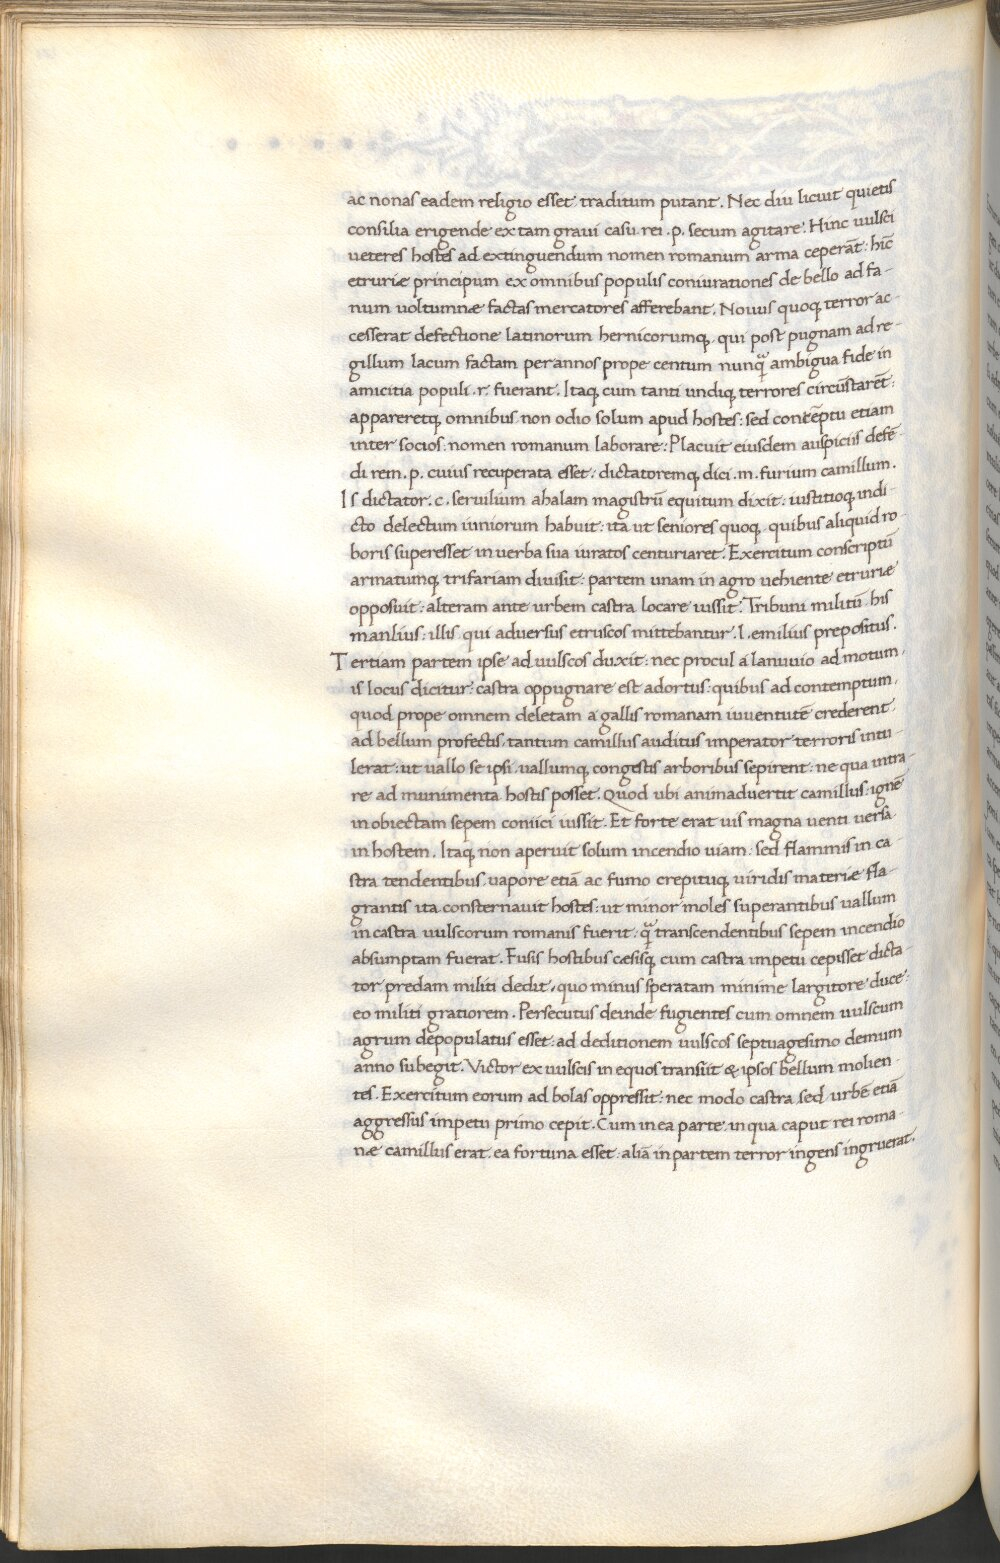 ac nonas eadem religio esset traditum putant. Nec diu licuit quietis
consilia erigende ex tam graui casu rei .p. secum agitare. Hinc uulsci
ueteres hostes ad extinguendum nomen romanum arma ceperāt: hīc
etruriæ principum ex omnibus populis coniurationes de bello ad fa-
num uoltumnæ factas mercatores afferebant. Nouus quoq; terror ac-
cesserat defectione latinorum hernicorumq; qui post pugnam ad re-
gillum lacum factam per annos prope centum nunq̄ ambigua fide in
amicitia populi .r. fuerant. Itaq; cum tanti undiq; terrores circūstarēt:
appareretq; omnibus non odio solum apud hostes: sed contēptu etiam
inter socios: nomen romanum laborare: Placuit eiusdem auspiciis defē-
di rem .p. cuius recuperata esset: dictatoremq; dici .m. furium camillum.
Is dictator .c. seruilium ahalam magistrū equitum dixit: iustitioq; indi-
cto delectum iuniorum habuit: ita ut seniores quoq; quibus aliquid ro-
boris superesset in uerba sua iuratos centuriaret. Exercitum conscriptū
armatumq; trifariam diuisit: partem unam in agro uehiente etruriæ
opposuit: alteram ante urbem castra locare iussit. Tribuni militū his
manlius: illis qui aduersus etruscos mittebantur .l. emilius prepositus.
Tertiam partem ipse ad uulscos duxit: nec procul a lanuuio ad motum.
is locus dicitur: castra oppugnare est adortus: quibus ad contemptum.
quod prope omnem deletam a gallis romanam iuuentutē crederent
ad bellum profectis tantum camillus auditus imperator terroris intu-
lerat: ut uallo se ipsi uallumq; congestis arboribus sepirent: ne qua intra-
re ad munimenta hostis posset. Quod ubi animaduertit camillus: ignē
in obiectam sepem coniici iussit. Et forte erat uis magna uenti uersa
in hostem. Itaq; non aperuit solum incendio uiam: sed flammis in ca
stra tendentibus uapore etiā ac fumo crepituq; uiridis materiæ fla-
grantis ita consternauit hostes: ut minor moles superantibus uallum
in castra uulscorum romanis fuerit: q̄ transcendentibus sepem incendio
absumptam fuerat. Fusis hostibus cæsisq; cum castra impetu cepisset dicta-
tor predam militi dedit, quo minus speratam minime largitore duce:
eo militi gratiorem. Persecutus deinde fugientes cum omnem uulscum
agrum depopulatus esset: ad deditionem uulscos septuagesimo demum
anno subegit. Victor ex uulscis in equos transiit & ipsos bellum molien-
tes. Exercitum eorum ad bolas oppressit: nec modo castra sed urbē etiā
aggressus impetu primo cepit. Cum in ea parte in qua caput rei roma-
næ camillus erat ea fortuna esset: aliā in partem terror ingens ingruerat.